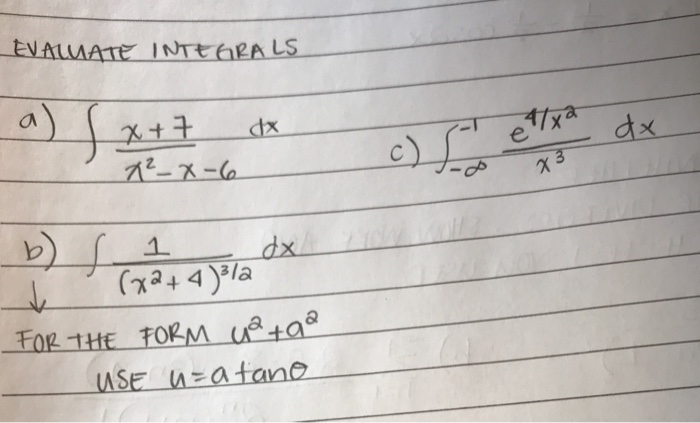 EVALUATE INTEGRALS
a) ∫ x+7 / x²-x-6 dx
c) ∫_{-∞}^{-1} e^{4/x²} / x³ dx
b) ∫ 1 / (x²+4)^{3/2} dx
↓
FOR THE FORM u²+a²
USE u=a tanθ